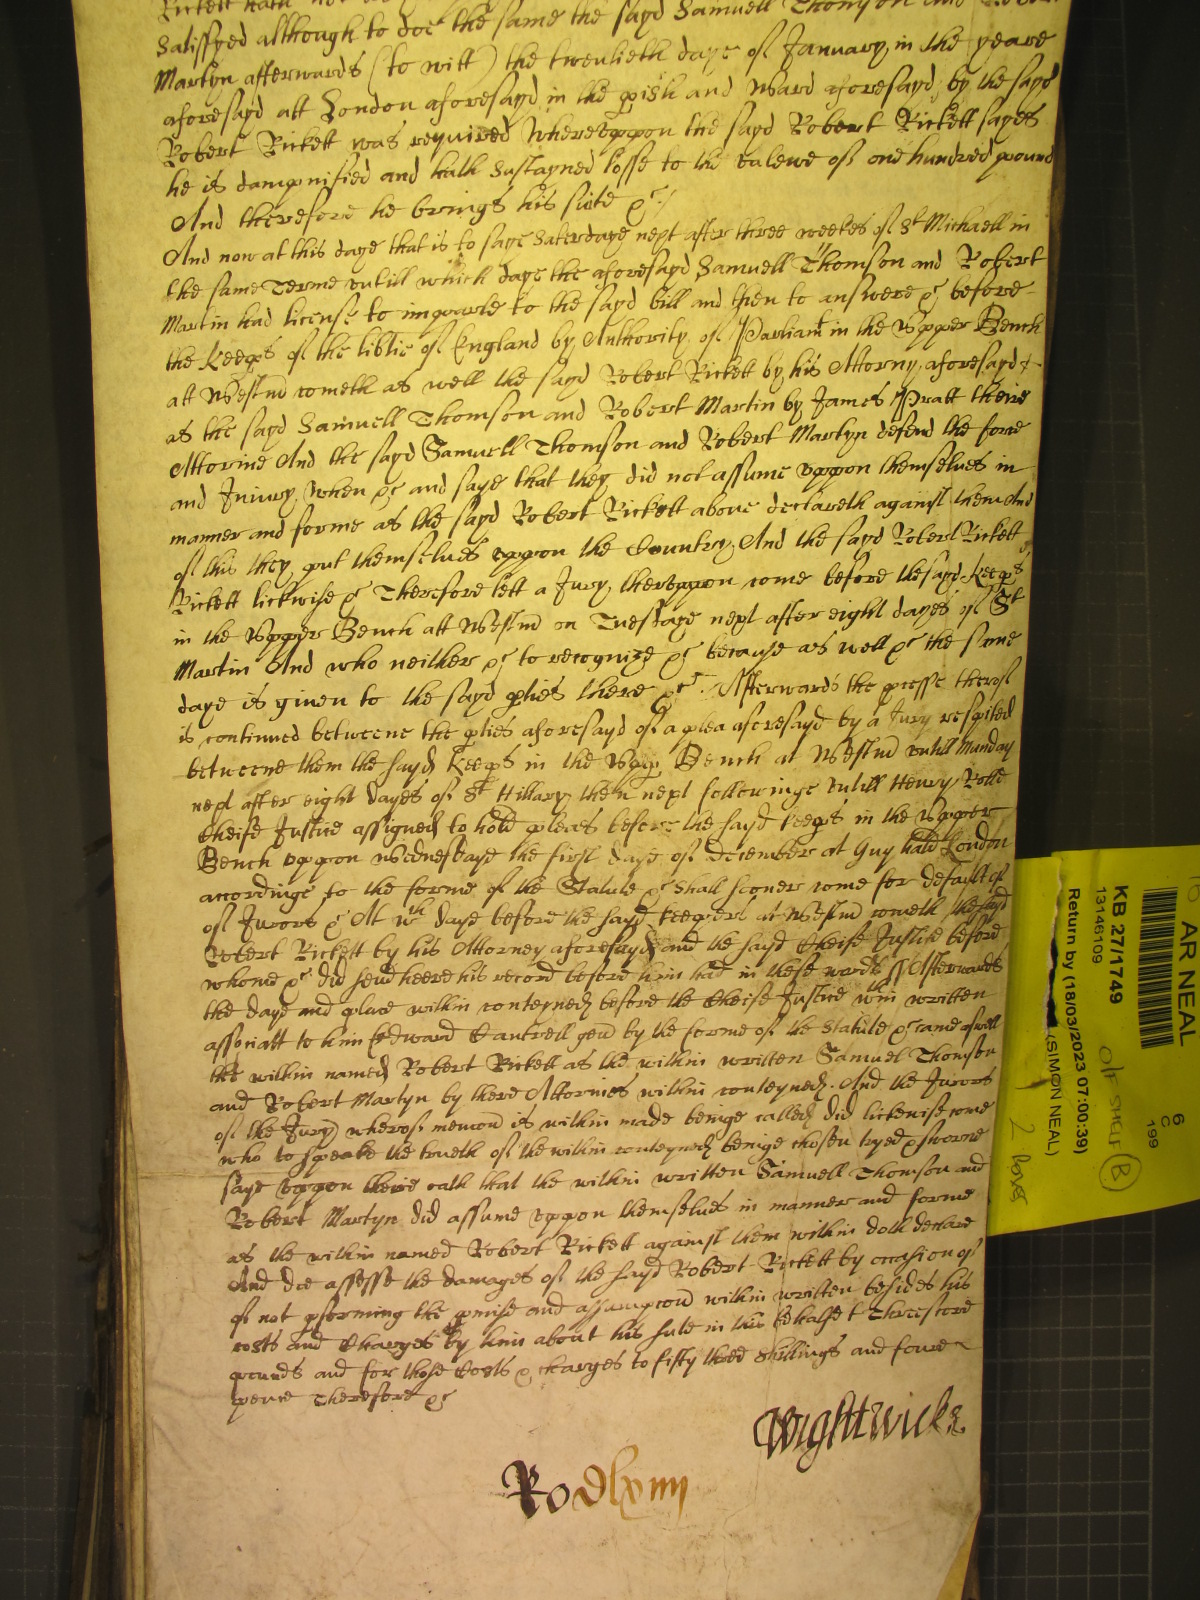 Rickett hath not
Satisfyed although to doe the same the sayd Samuell Thomson and Robert
Martyn afterwards (to witt) the twentieth daye of January in the yeare
aforesayd att London aforesayd in the pish and Ward aforesayd by the sayd
Robert Rickett was required Whereuppon the sayd Robert Rickett sayes
he is dampnified and hath sustayned losse to the valewe of one hundred pound
And therefore he brings his suite &c
And now at this daye that is to saye Saterdaye next after three weekes of St Michaell in
the same Terme untill which daye the aforesayd Samuell Thomson and Robert
Martin had license to imparle to the sayd bill and then to answere &c before
the Keeps of the libtie of England by Authority of Parliamt in the Upper Bench
att Westmr cometh as well the sayd Robert Rickett by his Attorny aforesayd
as the sayd Samuell Thomson and Robert Martin by James Pratt theire
Attornie And the sayd Samuell Thomson and Robert Martyn defend the force
and Iniury When &c and saye that they did not assume uppon themselves in
manner and forme as the sayd Robert Rickett above declareth against them And
of this they put themselves uppon the Country And the sayd Robert Rickett
Rickett lickwise &c Therefore lett a Jury thereuppon come before the sayd Keeps
in the Upper Bench att Westmr on Tuesdaye next after eight dayes of St
Martin And who neither &c to recognize &c because as well &c the same
daye is given to the sayd pties there &c Afterwards the pcesse thereof
is continued betweene the pties aforesayd of a plea aforesayd by a Jury respited
betweene them the sayd Keeps in the Upp Bench at Westmr untill Munday
next after eight dayes of St Hillary then next followinge Untill Henry Rolle
Cheife Justice assigned to hold pleas before the sayd Keeps in the Upper
Bench uppon Wednesdaye the first daye of December at Guyhald London
accordinge to the forme of the Statute &c shall sooner come for default of
of Jurors &c At wch daye before the sayd Keepers at Westmr cometh the sayd
Robert Rickett by his Attorney aforesayd and the sayd Cheife Justice before
whome &c did send heere his record before him had in these words ss Afterwards
the daye and place within conteyned before the Cheife Justice wthin written
associatt to him Edward Cantrell gen by the forme of the Statute &c came aswell
the within named Robert Rickett as the within written Samuel Thomson
and Robert Martyn by there Attornies within conteyned. And the Jurors
of the Jury wherof mencon is within made beinge called did lickewise come
who to speake the trueth of the within conteyned beinge chosen tryed & sworne
saye uppon theire oath that the within written Samuell Thomson and
Robert Martyn did assume uppon themselves in manner and forme
as the within named Robert Rickett against them within doth declare
And doe assesse the damages of the sayd Robert Rickett by occasion of
of not pforming the pmise and assumpcon within written besides his
costs and Charges by him about his sute in this behalfe to Threescore
pounds and for those Costs & charges to fifty three shillings and foure
pence Therefore &c
Wightwicke
Rodlynn
AR NEAL
KB 27/1749
13146109
Return by (18/03/2023 07:00:39)
(SIMON NEAL)
6
C
199
O/S Shelf B
2 boxes